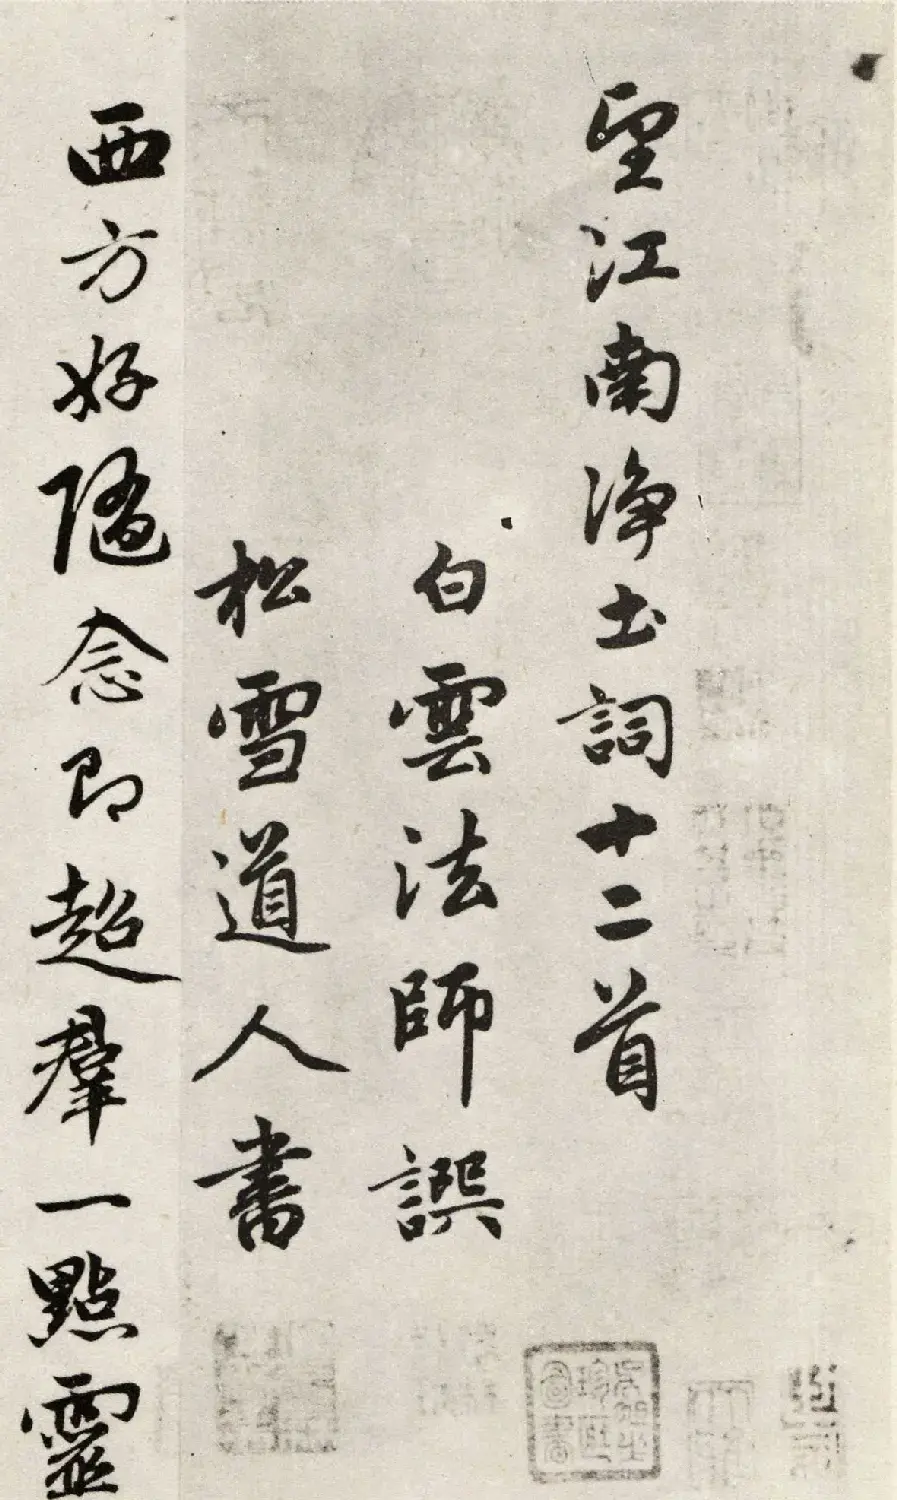 望江南淨土詞十二首
白雲法師譔
松雪道人書
西方好隨念即超羣一點靈